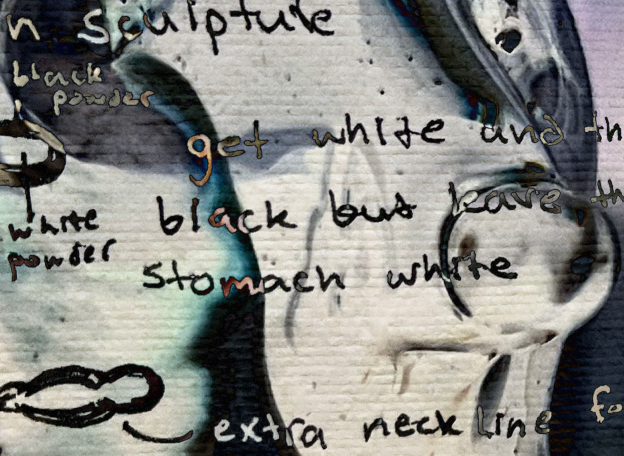 n sculpture
black
powder
get white and th
black but leave th
stomach white
white
powder
extra neck line fo